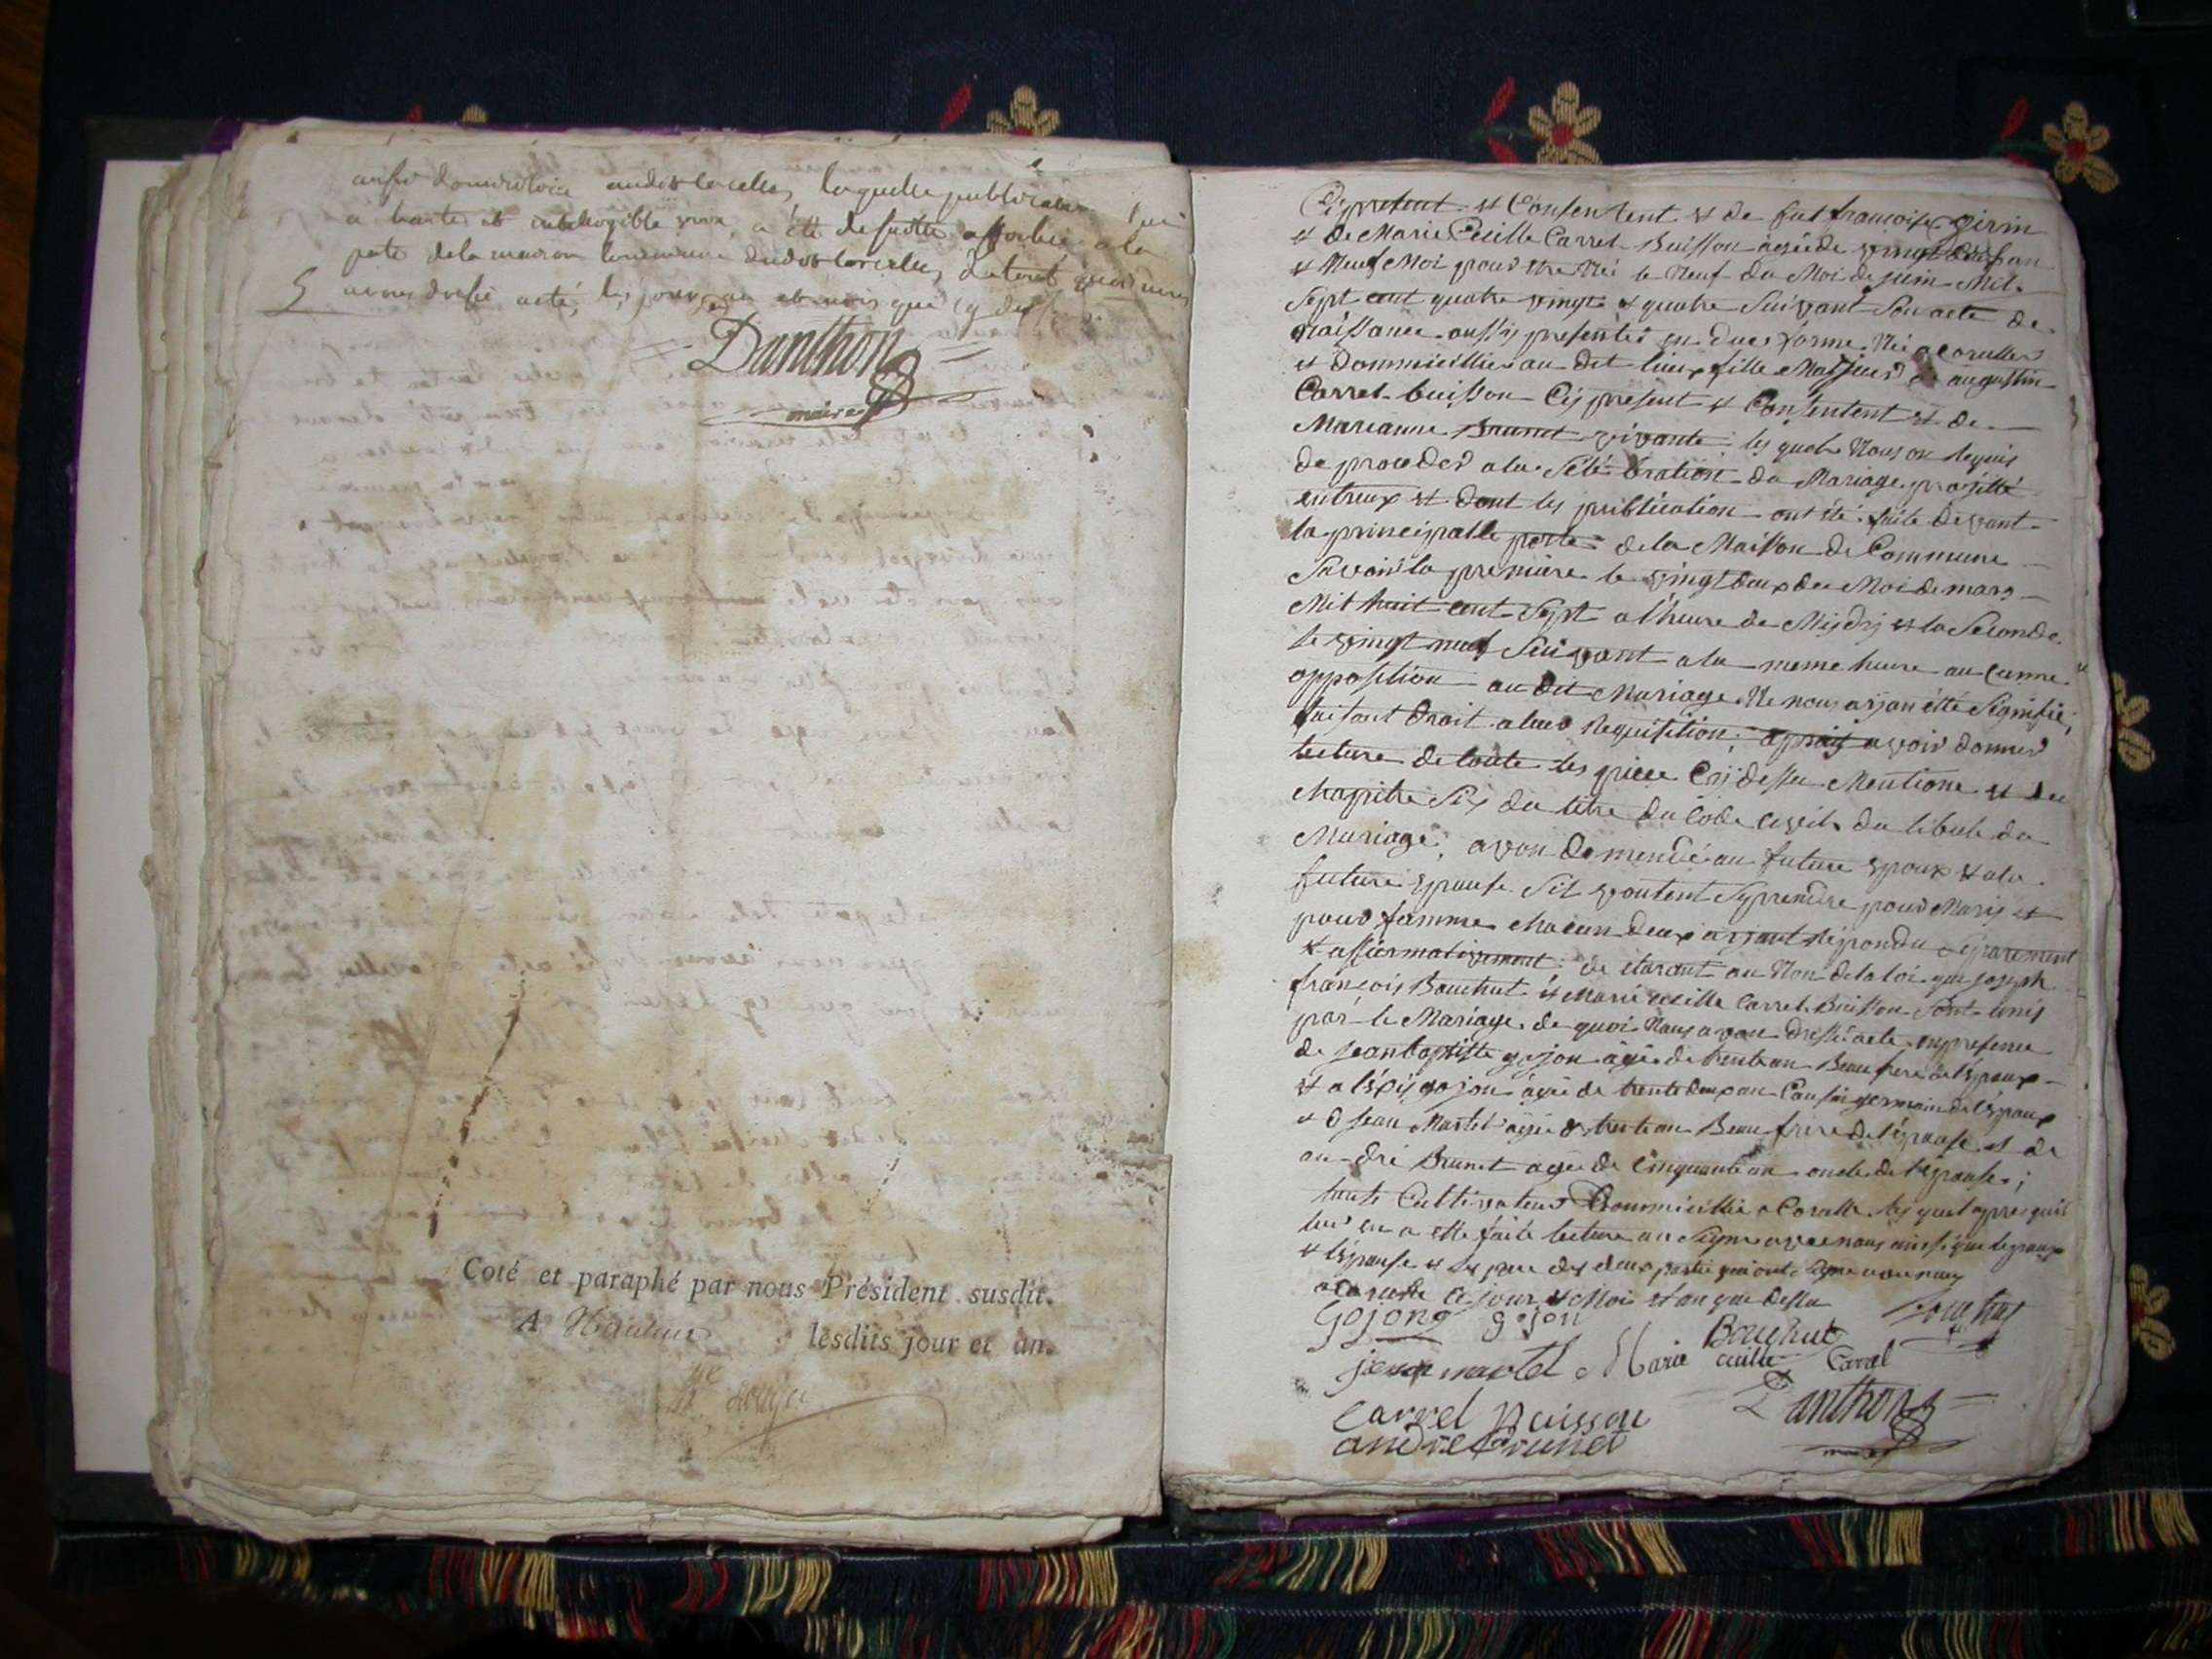 domicilié audit laquelle publication
a haute et intelligible voix, a été de suitte affichée a la
porte dela maison commune dudit de tout quoi nous
avons dressé acte, les jour, an et mois que cy dessus.
Danthon
maire
Coté et paraphé par nous Président susdit.
A lesdits jour et an.
Cy present et Consentent et de fut francoise girin
et de Marie Cecille Carret Buisson agée de vingt deux an
et Neuf Moi pour etre Né le Neuf du Moi de juin Mil
Sept cent quatre vingt et quatre Suivant Son acte de
Naissance aussy presenter en dues forme. Né a
et dommicillier au dit lieux fille Majeur de augustin
Carret buisson Cy present et Consentent et de
Marianne Brunet vivante; les quels Nous on Requis
de proceder a la Célébration du Mariage projetté
entreux et dont les publication ont été faite devant
la principalle porte de la Maison de Commune
Savoir la première le vingt deux du Moi de mars
Mil huit cent Sept a l'heure de Mydy et la Seconde
le vingt neuf Suivant a la meme heure au cunne
opposition au dit Mariage Ne nous ayan étté Signifié;
faisant Droit a leur Requisition; apprais avoir donner
lecture de toute les piece Cy dessu Mentione et du
chapitre Six du titre du Code civil du titule du
Mariage; avon demendé au future epoux et a la
future epouse Sil voutent Se prendre pour Mary et
pour famme chacun deux ayant répondu Separement
et affirmativement; de clarant au Non de la loi que joseph
françois Bouchut et Marie cecille Carret Buisson Sont unis
par le Mariage de quoi Nous avon dressé acte en presence
de jean baptiste gojon agé de trente an Beau frere de l'epoux
et alexis gojon agé de trente deux an Cousin germain de l'epoux
et d jean Martel agé de trente an Beau frere de l'epouse et de
andré Brunet agé de Cinquante an oncle de l'epouse;
touts Cultivateur Dommicillié a les quel apres quil
leur en a etté faite lecture on Signe avec nous ainsi que lepoux
et lepouse et les pere des deux partie qui ont Signe avec nous
a ce jour et Mois et an que dessu
Gojong gojon Bouchut
Bouchut
jean martel Marie cecille Carret
Carret Buisson Danthon
andre Brunet maire